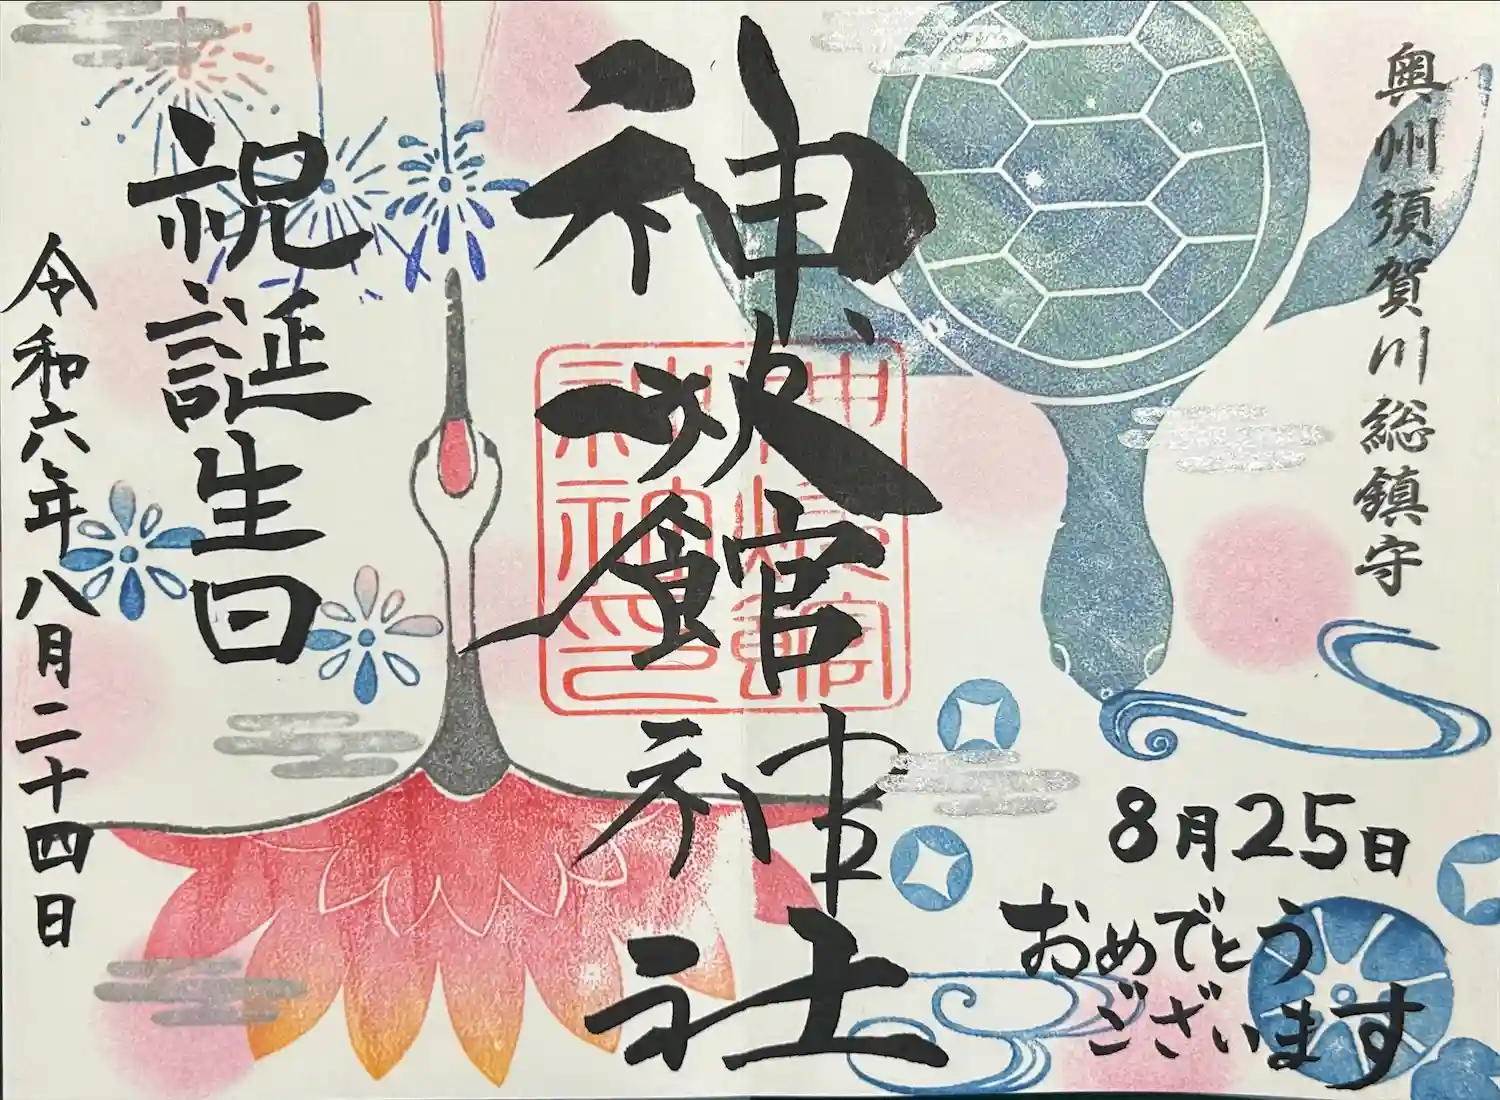 奥州須賀川総鎮守
神炊館神社
神炊館
神社印
祝誕生日
令和六年八月二十四日
8月25日
おめでとう
ございます